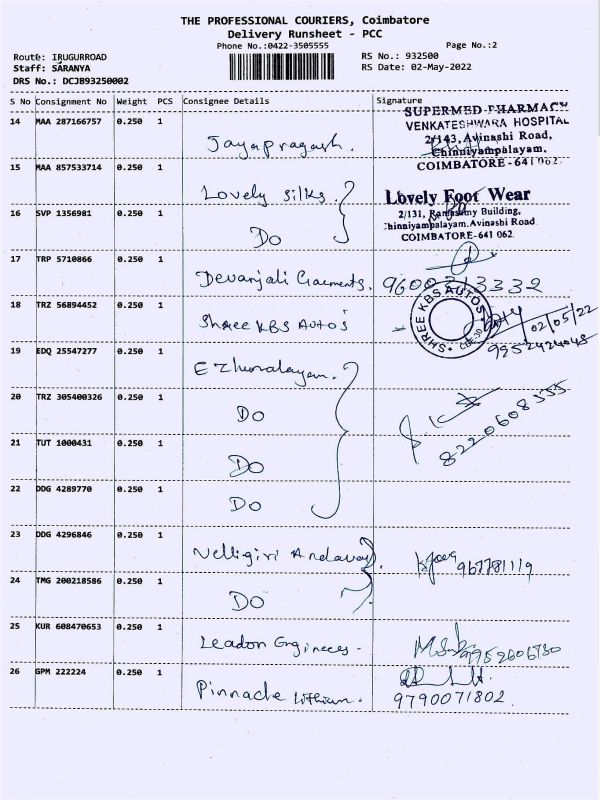 THE PROFESSIONAL COURIERS, Coimbatore
Delivery Runsheet - PCC
Phone No.:0422-3505555
Page No.:2
Route: IRUGURROAD
RS No.: 932500
Staff: SARANYA
RS Date: 02-May-2022
DRS No.: DCJB93250002
S No Consignment No Weight PCS Consignee Details Signature
14 MAA 287166757 0.250 1
Jayapragash.
SUPERMED PHARMACY
VENKATESHWARA HOSPITAL
2/143, Avinashi Road,
Chinniyampalayam,
COIMBATORE - 641 062.
15 MAA 857533714 0.250 1
Lovely Silks.
Lovely Foot Wear
2/131, Rangasamy Building,
Chinniyampalayam, Avinashi Road
COIMBATORE-641 062.
16 SVP 1356981 0.250 1
Do
17 TRP 5710866 0.250 1
Devanjali Garments.
9600313332
18 TRZ 56894452 0.250 1
Shree KBS Autos
SHREE KBS AUTOS
02/05/22
9952424048
19 EDQ 25547277 0.250 1
Ezhumalayan.
20 TRZ 305400326 0.250 1
Do
8220608355
21 TUT 1000431 0.250 1
Do
22 DDG 4289770 0.250 1
Do
23 DDG 4296846 0.250 1
Nelligiri Andavar.
967781119
24 TMG 200218586 0.250 1
Do
25 KUR 608470653 0.250 1
Leadon Engineers -
9952606730
26 GPM 222224 0.250 1
Pinnacle Lithium.
9790071802